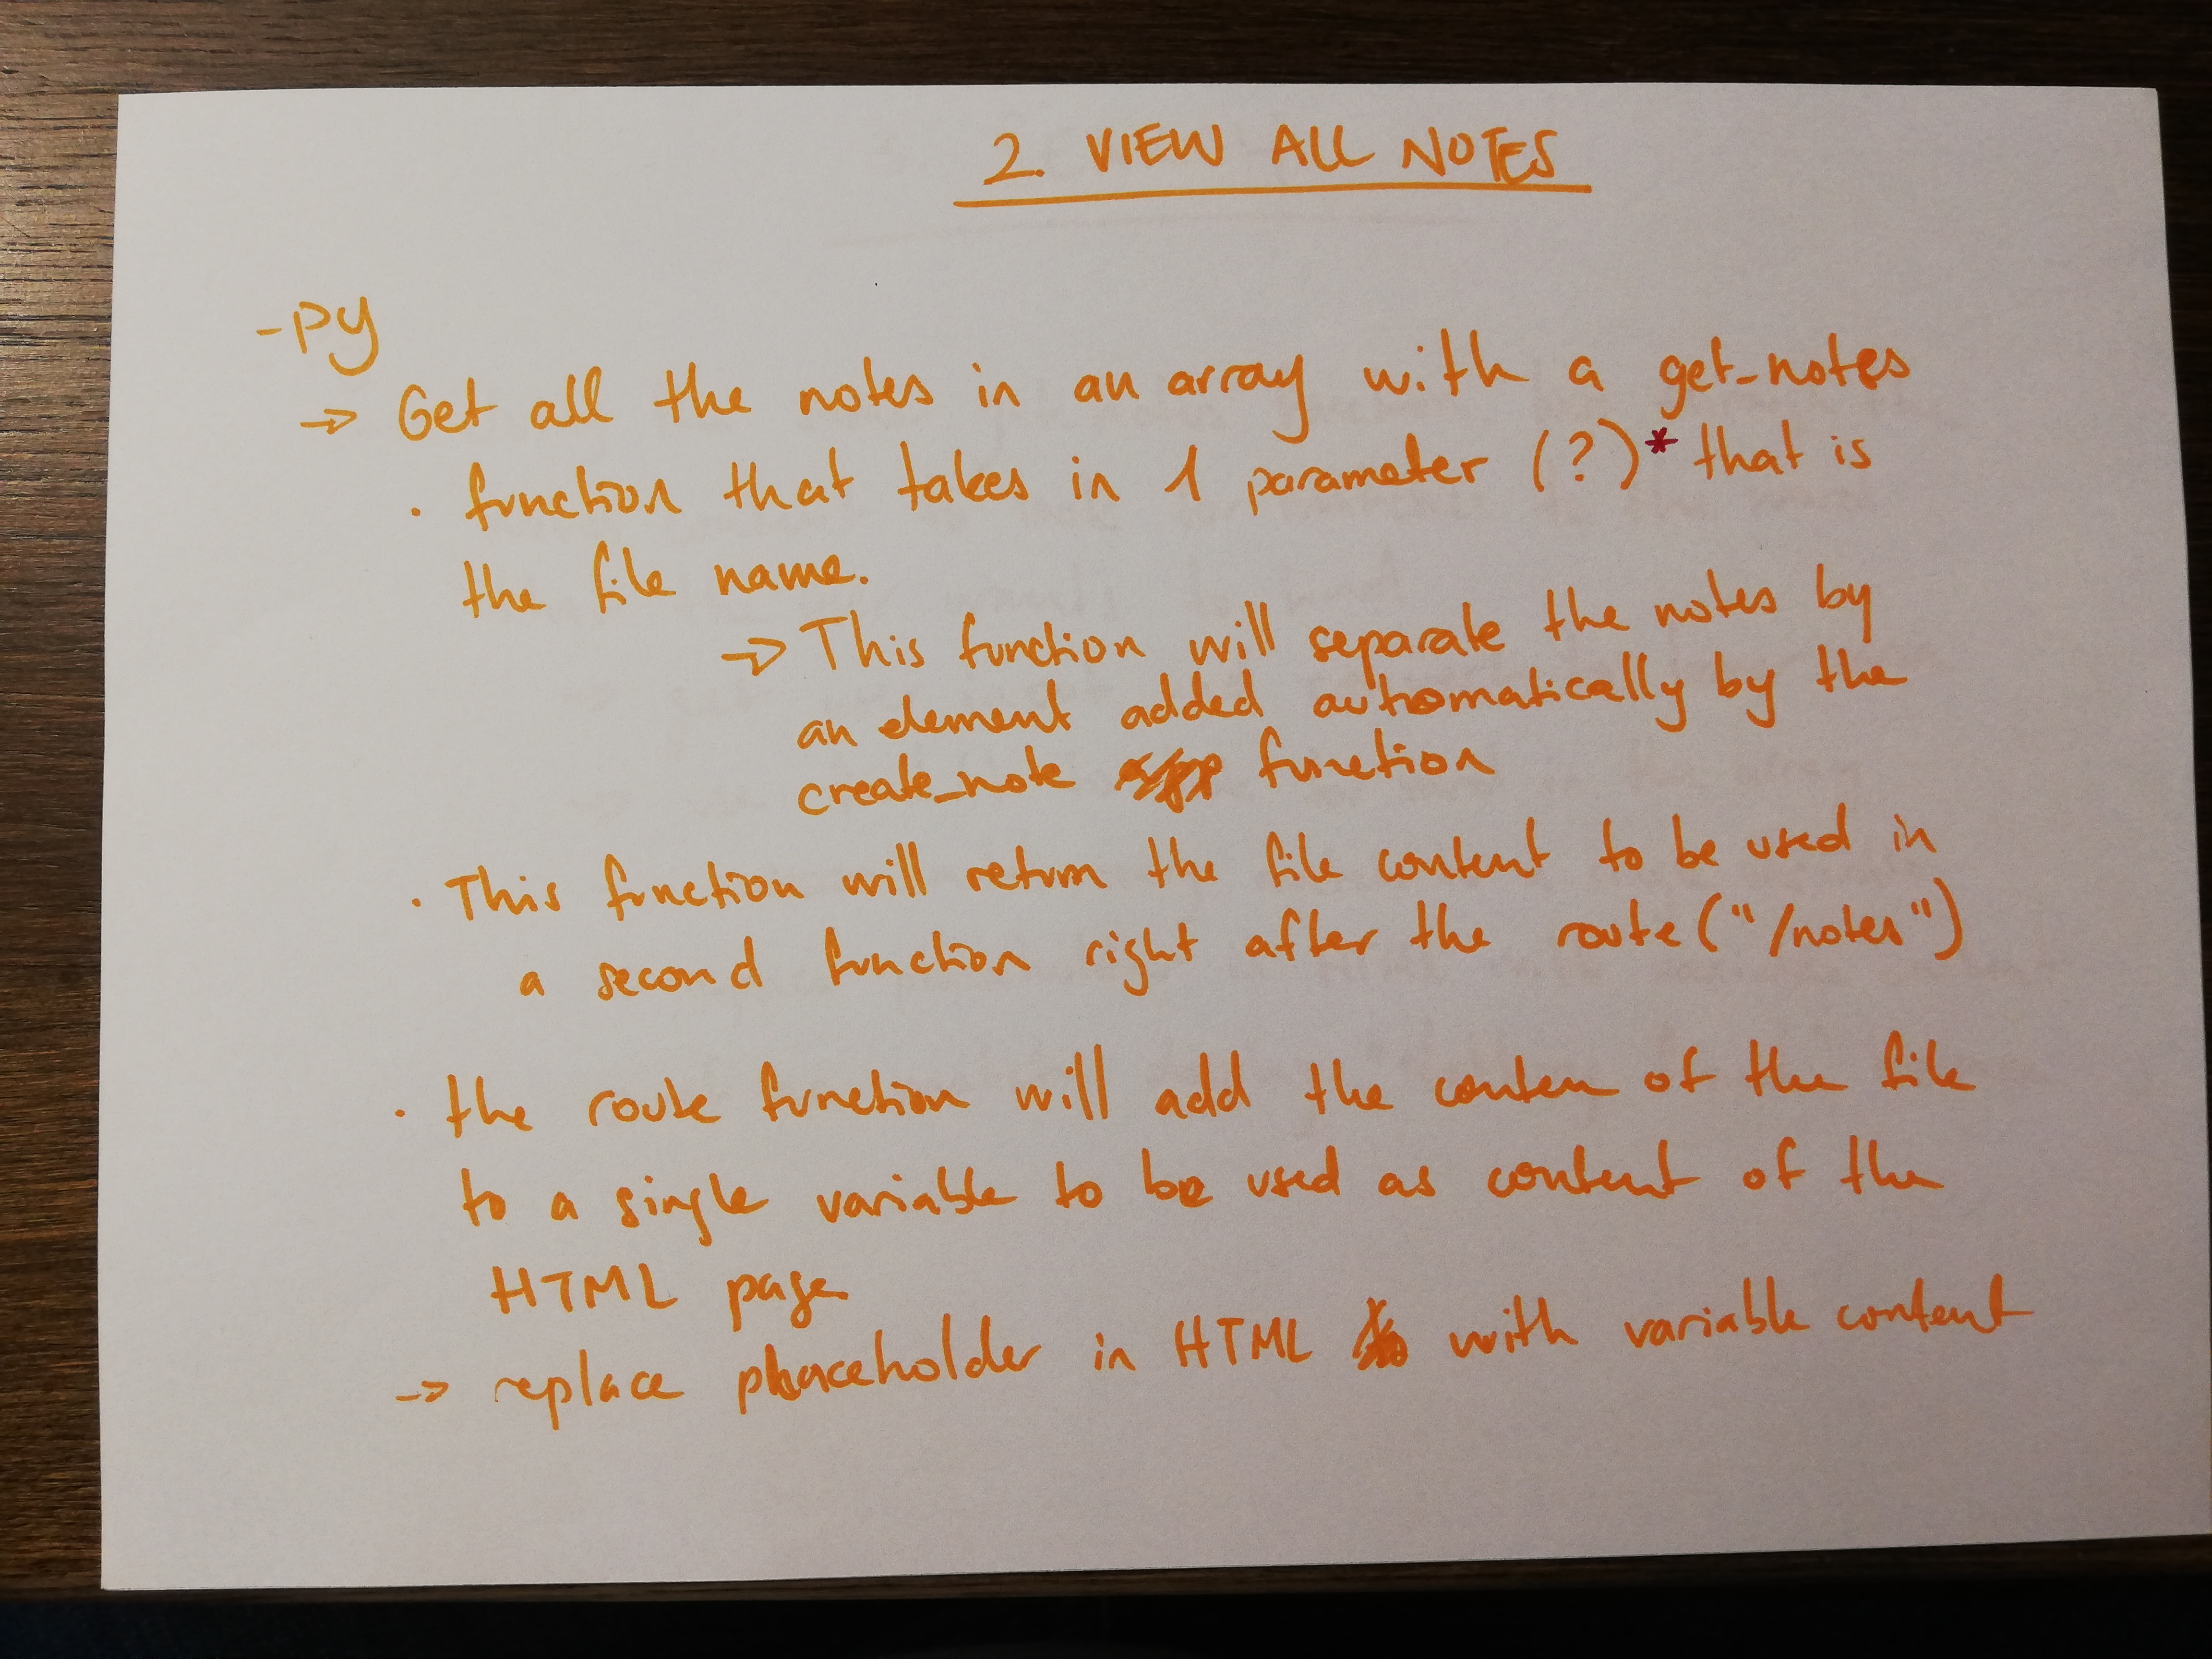 2. VIEW ALL NOTES
-py
→ Get all the notes in an array with a get_notes
· function that takes in 1 parameter (?)* that is
the file name.
→ This function will separate the notes by
an element added automatically by the
create_note function
· This function will return the file content to be used in
a second function right after the route("/notes")
· the route function will add the conten of the file
to a single variable to be used as content of the
HTML page
→ replace placeholder in HTML with variable content